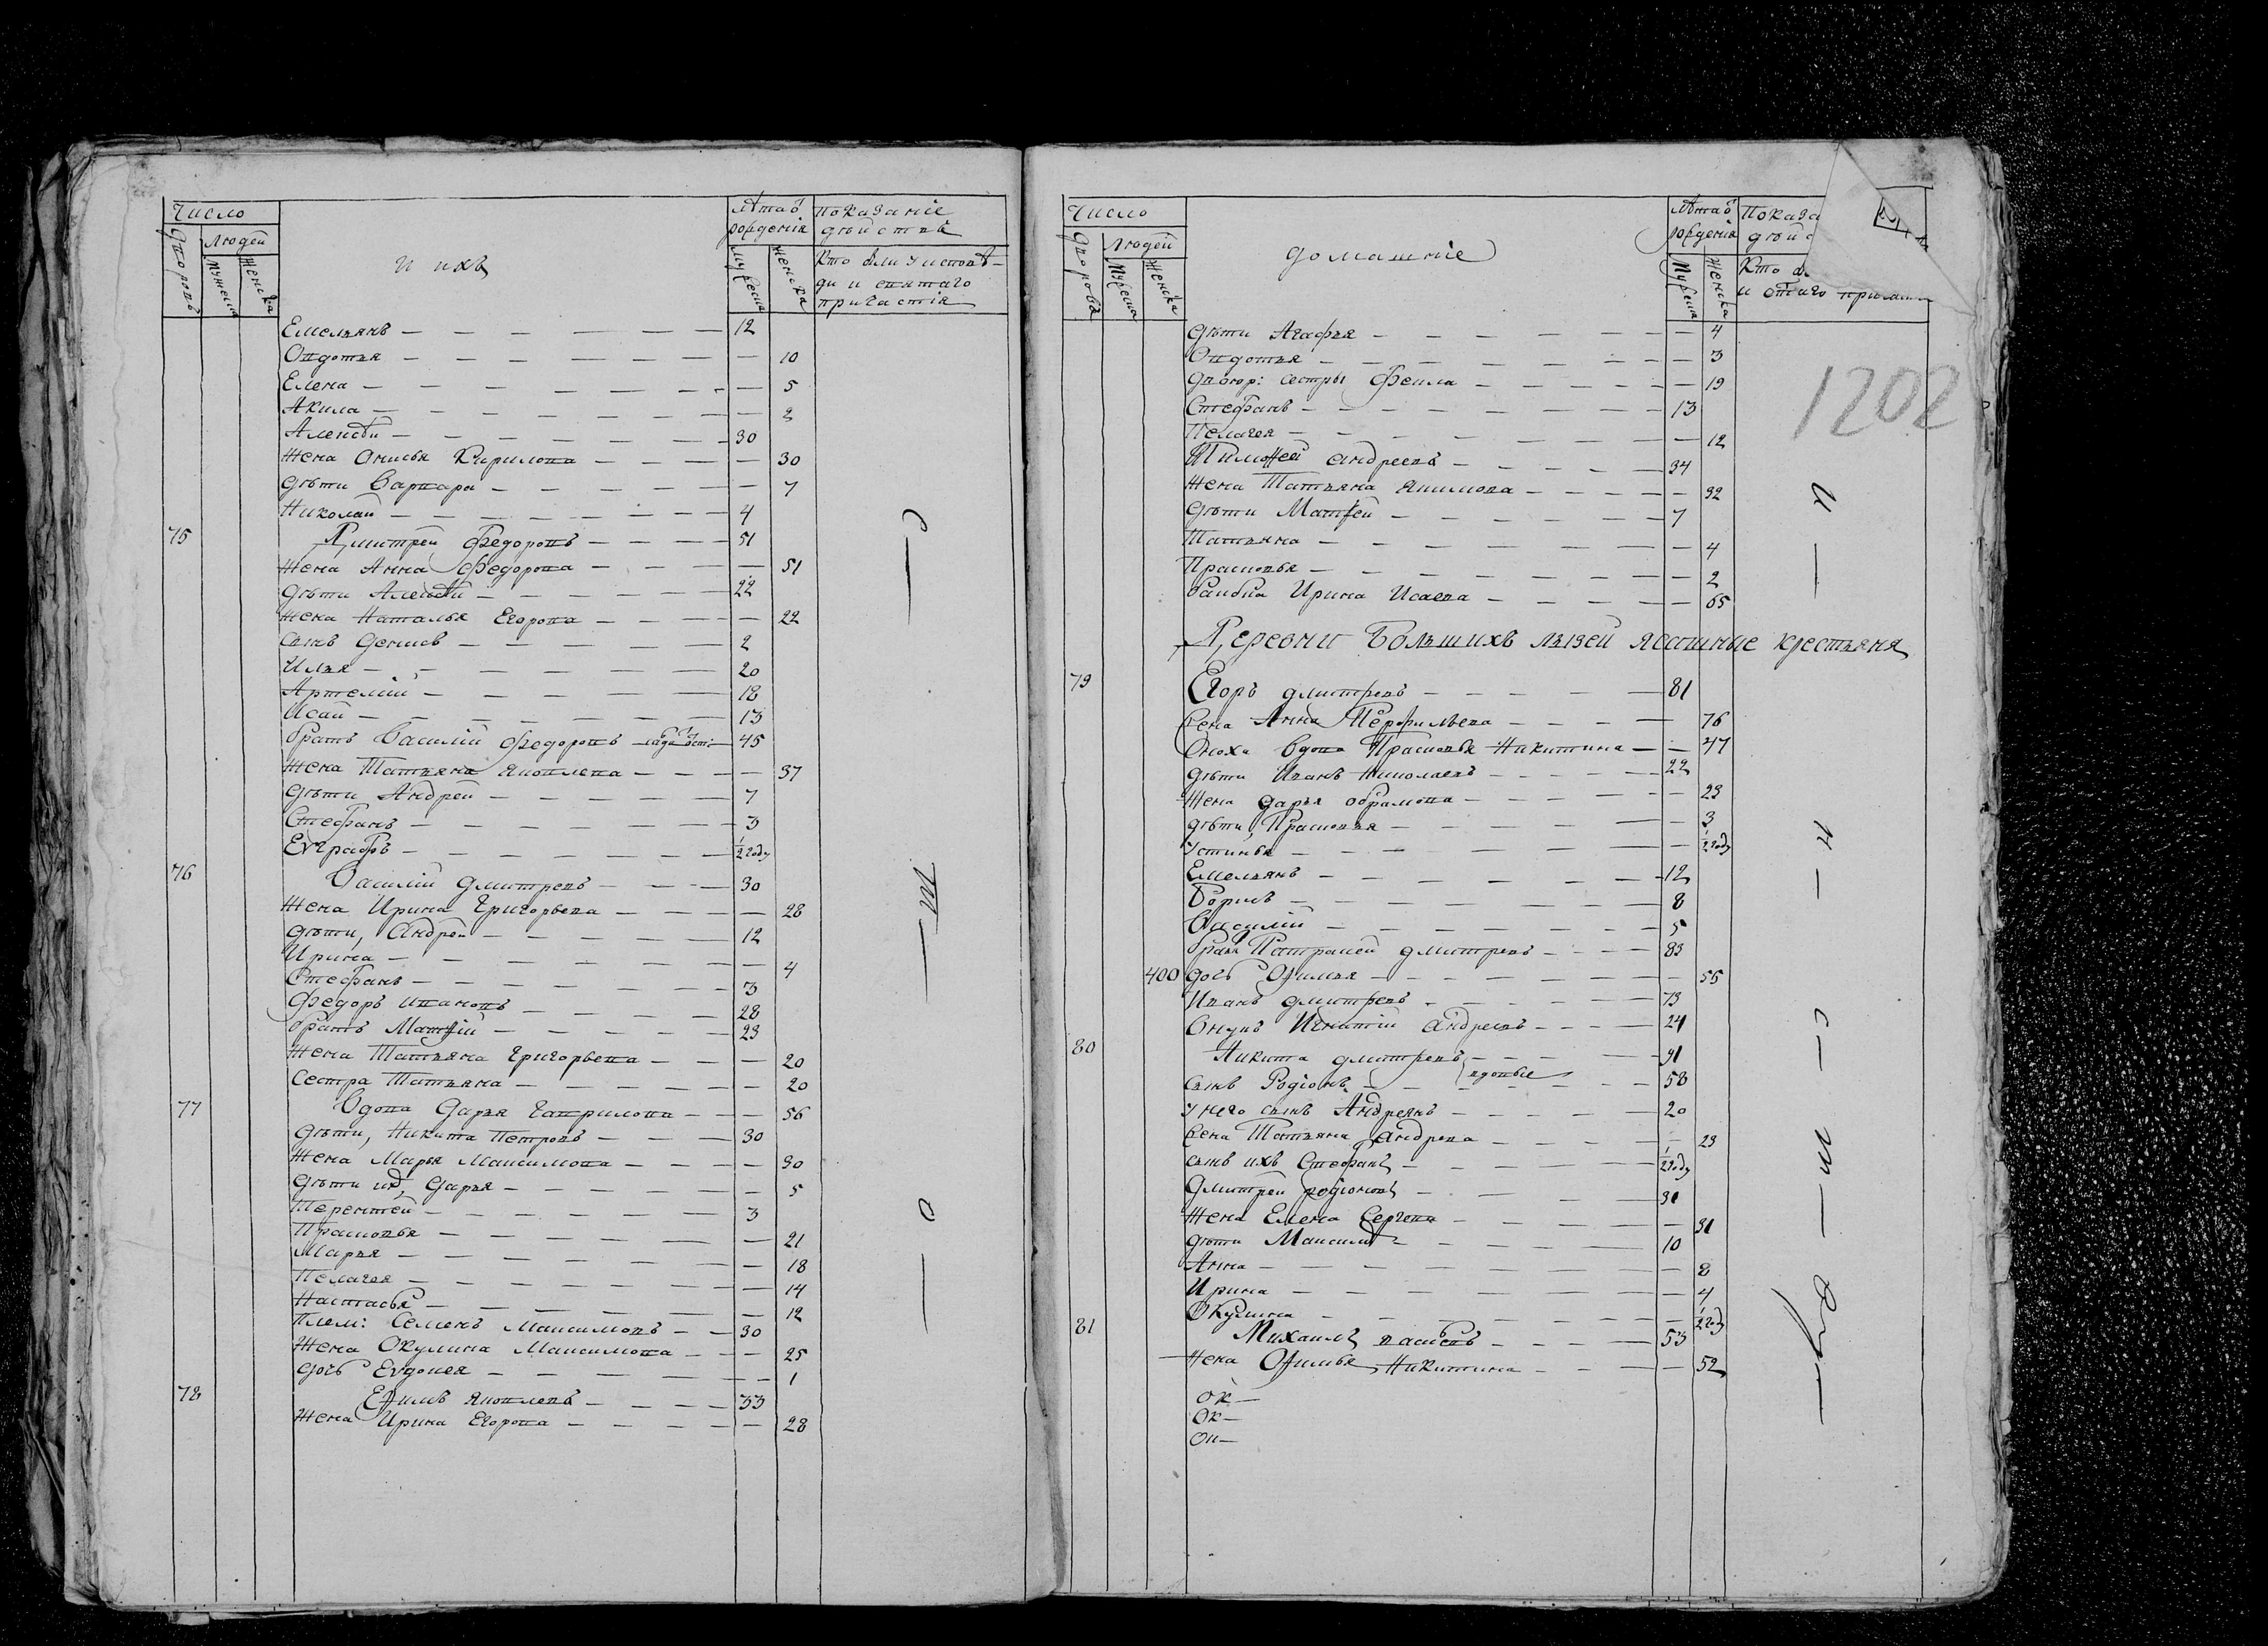 Число
Людей
Дворовъ
Мужеска
Женска
и ихъ
Лѣта ѿ рожденія
Мужеска
Женска
Показаніе дѣйствъ
Кто были у исповѣ-
ди и святаго
причастія
Емельянъ — 12
Овдотья — 10
Елена — 5
Акила — 2
Алексѣй — 30
Жена Онисья Кирилова — 30
Дѣти Варвара — 7
Николай — 4
75 Дмитрей Федоровъ — 51
Жена Анна Федорова — 51
Дѣти Алексѣй — 22
Жена Наталья Егорова — 22
Сынъ Денисъ — 2
Илья — 20
Артемій — 18
Исай — 13
Братъ Василій Федоровъ — 45
Жена Татьяна Яковлева — 37
Дѣти Андрей — 7
Стефанъ — 3
Еѵграфъ — 1/2 году
76 Василій Дмитревъ — 30
Жена Ирина Григорьева — 28
Дѣти, Андрей — 12
Ирина — 4
Стефанъ — 3
Федоръ Ивановъ — 28
Братъ Матѳій — 23
Жена Татьяна Григорьева — 20
Сестра Татьяна — 20
77 Вдова Дарья Гаврилова — 56
Дѣти, Никита Петровъ — 30
Жена Марья Максимова — 30
Дѣти их, Дарья — 5
Терентей — 3
Прасковья — 21
Марья — 18
Пелагея — 14
Настасья — 12
Плем: Семенъ Максимовъ — 30
Жена Окулина Максимова — 25
Дочь Еѵдокея — 1
78 Еѳимъ Яковлевъ — 33
Жена Ирина Егорова — 28
с — т — о
Число
Людей
Дворовъ
Мужеска
Женска
домашніе
Лѣта ѿ рожденія
Мужеска
Женска
Показа
дѣйс
Кто
и
1202
Дѣти Агафья — 4
Овдотья — 3
Двоюр: сестры Фекла — 19
Стефанъ — 13
Пелагея — 12
Тимоѳей Андреевъ — 34
Жена Татьяна Якимова — 32
Дѣти Матѳей — 7
Татьяна — 4
Прасковья — 2
Бабка Ирина Исаева — 65
Деревни Большихъ Лызей ясашные крестьяня
79 Егоръ Дмитревъ — 81
Жена Анна — 76
Сноха вдова Прасковья Никитина — 47
Дѣти Иванъ Николаевъ — 22
Жена Дарья Обрамова — 23
Дѣти, Прасковья — 3
Устинья — 1/2 году
Емельянъ — 12
Борисъ — 8
Василій — 5
Братъ Патракей Дмитревъ — 83
400 Дочь Оѳимья — 55
Иванъ Дмитревъ — 73
Внукъ Игнатій Андреевъ — 24
80 Никита Дмитревъ — 91
вдовые
Сынъ Родіонъ — 58
У него сынъ Андреянъ — 20
Жена Татьяна Андрева — 23
Сынъ ихъ Стефанъ — 1/2 году
Дмитрей Родіоновъ — 31
Жена Елена Сергева — 31
Дѣти Максимъ — 10
Анна — 8
Ирина — 4
Окулина — 1/2 году
81 Михаилъ Васильевъ — 53
Жена Оѳимья Никитина — 52